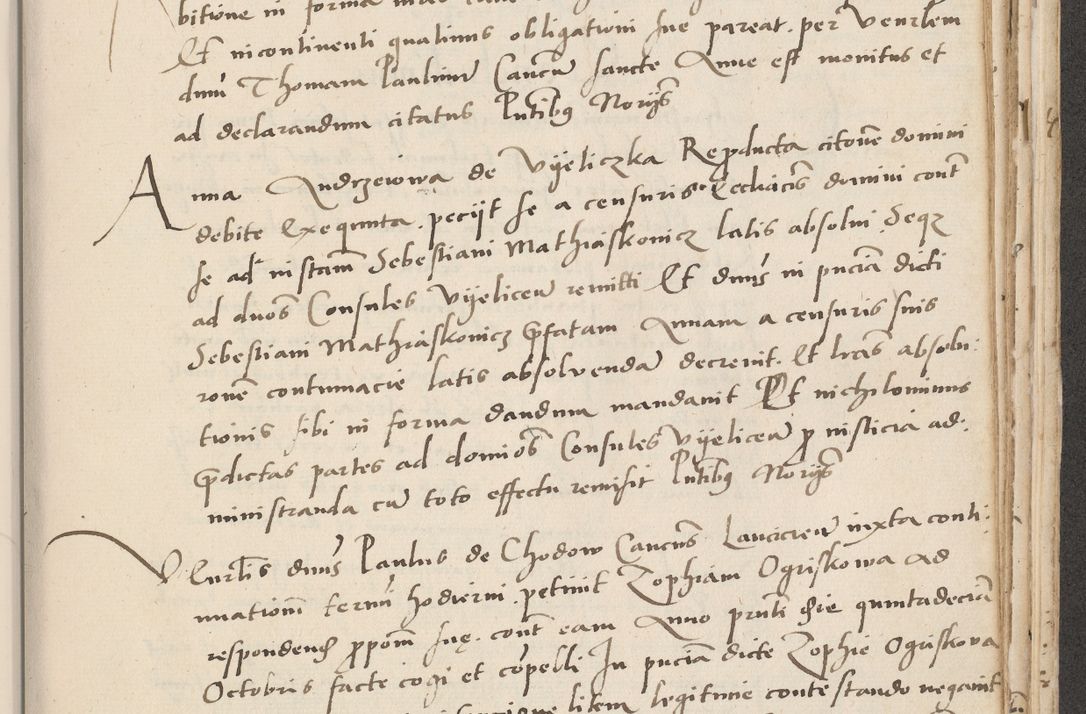 bitione in forma
Et incontinenti quatinus obligationi sue pareat. per venrlem
dnm Thomam Paulinum Cancrum sancte Anne est monitus et
ad declarandum citatus Pntibus Norijs
Anna Andrzeiowa de Vyeliczka Reproducta citone domini
debite Exequuta. pecijt se a censuris Ecclicis domini cont
se ad instam Sebestiani Mathiaskonicz latis absolui. Seqz
ad dnos Consules Vyelicen remitti Et dnus in pncia dicti
Sebestiani Mathiaskonicz prefatam Annam a censuris suis
rone contumacie latis absoluendam decreuit. Et lras absolu:
tionis sibi in forma dandum mandauit Et nichilominus
predictas partes ad dominos Consules Vyelicen pro iusticia ad:
ministranda cum toto effectu remisit Pntibus Norijs
Venrlis dnus Paulus de Chodow Cancrus Lanciren iuxta conti:
nuationem termi hodierni. petiuit Zophiam Ogriskowa ad
respondendum propom sue. cont eam Anno prnti die quintadecia
Octobris facte cogi et compelli In pncia dicte Zophie Ogriskova
litem legitime contestando negauit